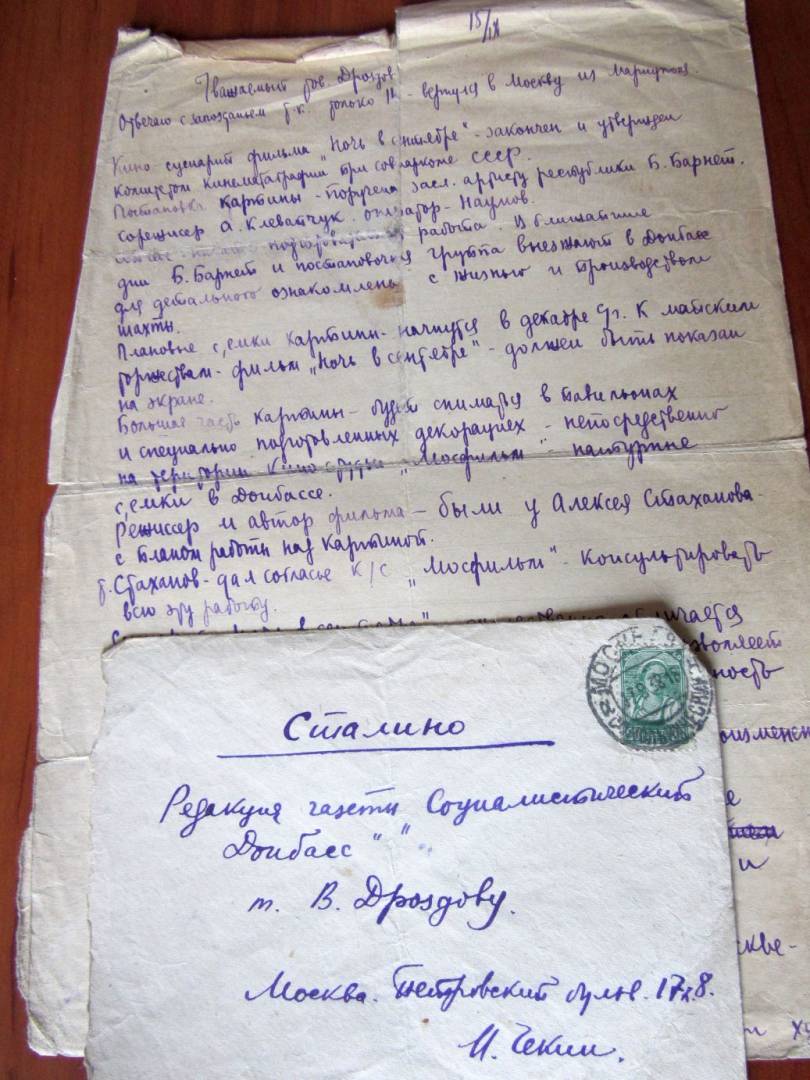 15/IX
Уважаемый тов. Дроздов
Отвечаю с запозданьем т.к. только вернулся в Москву из Мариуполя.
Кино сценарий фильма "Ночь в сентябре" - закончен и утвержден
комитетом кинематаграфии при совнаркоме СССР.
Постановка картины - поручена засл. артисту республики Б. Барнет.
сорежисер А. Клевапчук. оператор - Наумов.
подготовительная работа. В ближайшие
дни Б. Барнет и постановочная группа выезжают в Донбасс
для детального ознакомленья с жизнью и производством
шахты.
Плановые с,емки картины - начнутся в декабре с/г. К майским
торжествам - фильм "Ночь в сентябре" - должен быть показан
на экране.
Большая часть картины - будет сниматься в павильонах
и специально подготовленных декорациях - непосредственно
на територии кино студии "Мосфильм" - натурные
с,емки в Донбассе.
Режиссер и автор фильма - были у Алексея Стаханова -
с планом работы над картиной.
т. Стаханов - дал согласье к/с "Мосфильм" - консультировать
всю эту работу.
Сталино
Редакция газеты "Социалистический
Донбасс"
т. В. Дроздову.
Москва. Петровский бульв. 17 к 8.
И. Чекин.